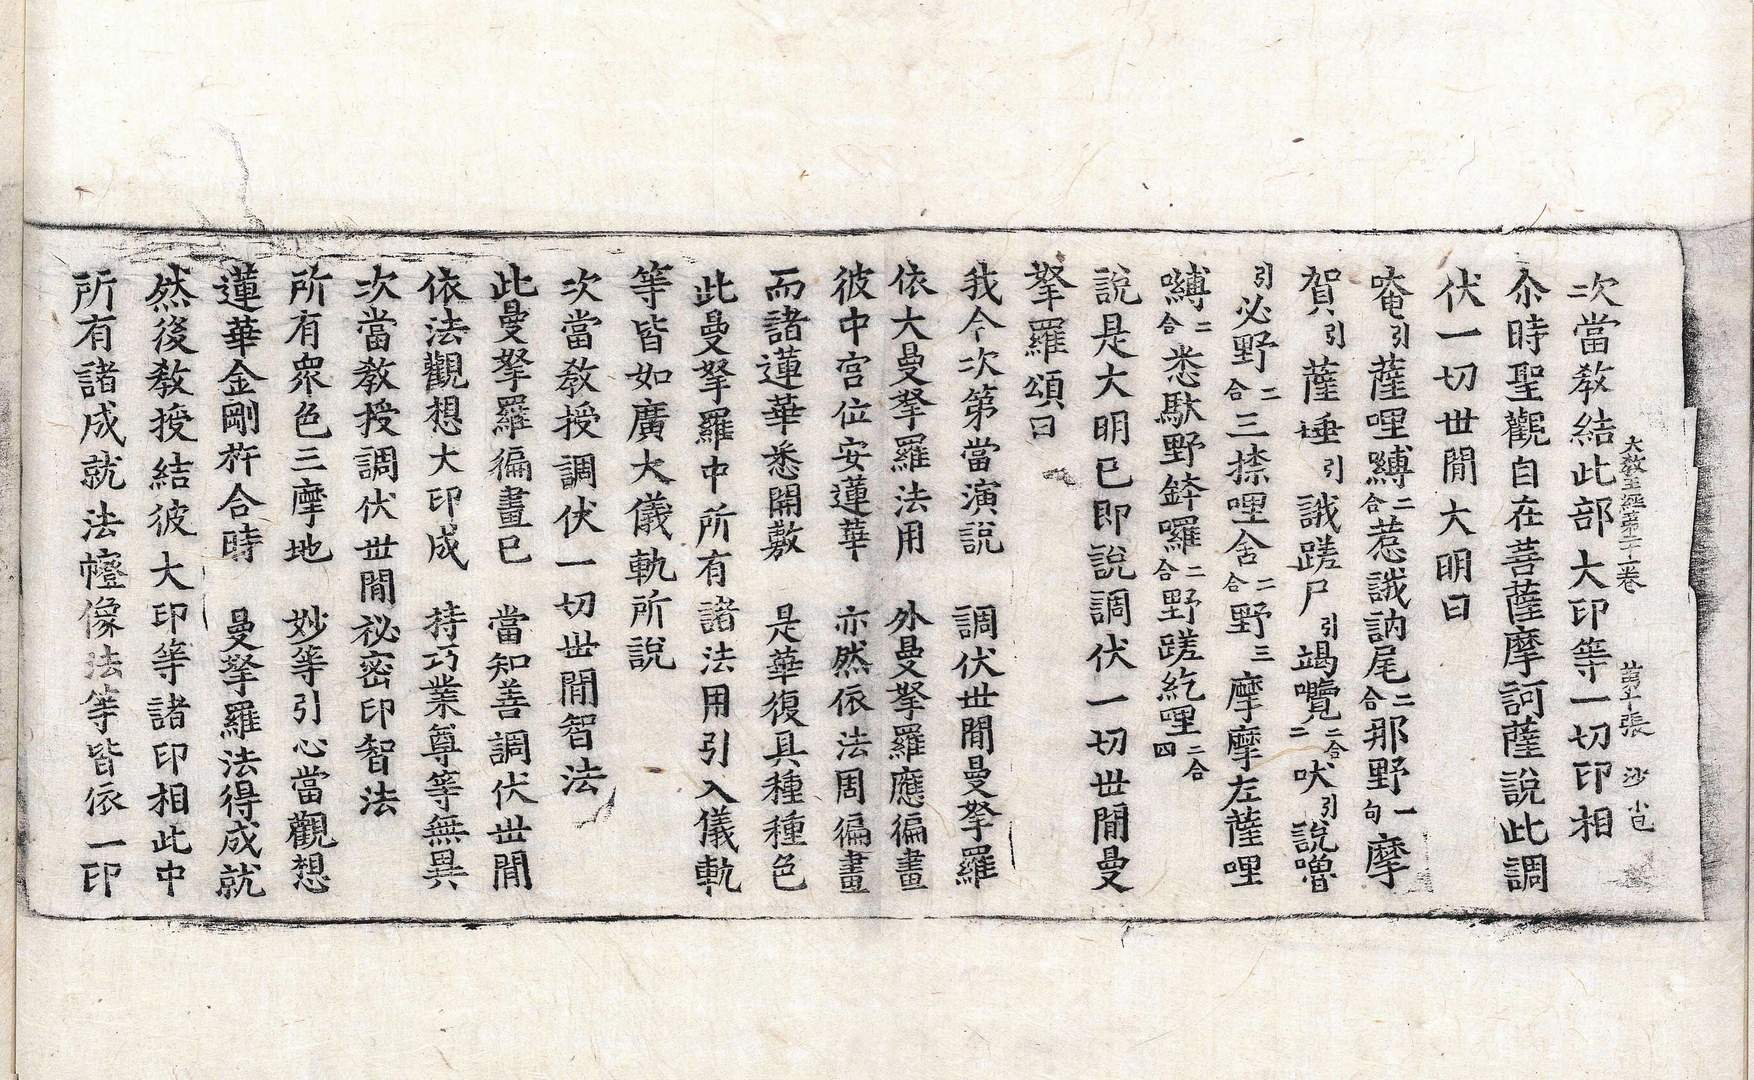 次當敎結此部大印等一切印相
大敎王經第二十二卷　張　沙
尒時聖觀自在菩薩摩訶薩說此調
伏一切世間大明曰
唵引薩哩嚩二合惹誐訥尾二合那野一句摩
賀引薩埵引誐蹉尸引竭囕二合二吠引說嚕
引必野二合三摖哩舍二合野三摩摩左薩哩
嚩二合悉馱野鉾囉二合野蹉紇哩二合四
說是大明已即說調伏一切世間曼
拏羅頌曰
我今次第當演說　調伏世間曼拏羅
依大曼拏羅法用　外曼拏羅應徧畫
彼中宮位安蓮華　亦然依法周徧畫
而諸蓮華悉開敷　是華復具種種色
此曼拏羅中所有諸法用引入儀軌
等皆如廣大儀軌所說
次當敎授調伏一切世間智法
此曼拏羅徧畫已　當知善調伏世間
依法觀想大印成　持巧業尊等無異
次當敎授調伏世間祕密印智法
所有眾色三摩地　妙等引心當觀想
蓮華金剛杵合時　曼拏羅法得成就
然後敎授結彼大印等諸印相此中
所有諸成就法幢像法等皆依一印